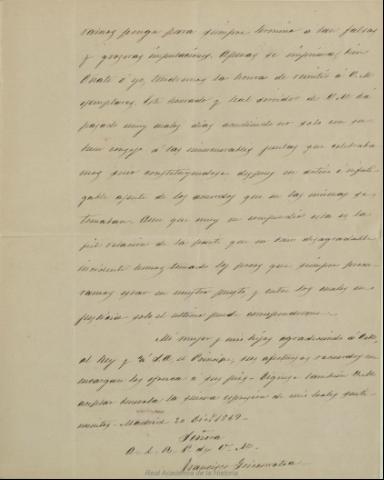 ponga para siempre termino a tan falsas
y groseras imputaciones. Apenas se imprima, bien
Oñate ó yo, tendremos la honra de remitir á V.M.
ejemplares. Este honrado y leal servidor de V.M. há
pasado muy malos dias acudiendo no solo con su
buen consejo á las innumerables juntas que celebraba
mos sino constituyendose despues en activo é infati-
gable agente de los acuerdos que en las mismas se
tomaban. Aun que muy en compendio esta es la
fiel relacion de la parte que en tan desagradable
incidente hemos tomado los pocos que siempre procu-
ramos estar en nuestro puesto y entre los cuales en
justicia solo el ultimo puede corresponderme.
Mi mujer y mis hijos agradeciendo á V.M.
al Rey y á S.A. el Principe, sus afectuosos recuerdos me
encargan los ofrezca á sus pies. Dignese tambien V.M.
aceptar benevola la nueva espresion de mis leales senti-
mientos. Madrid 20 Dic. 1869.
Señora
A. L. R. P. de V. M.
Francisco
Real Academia de la Historia